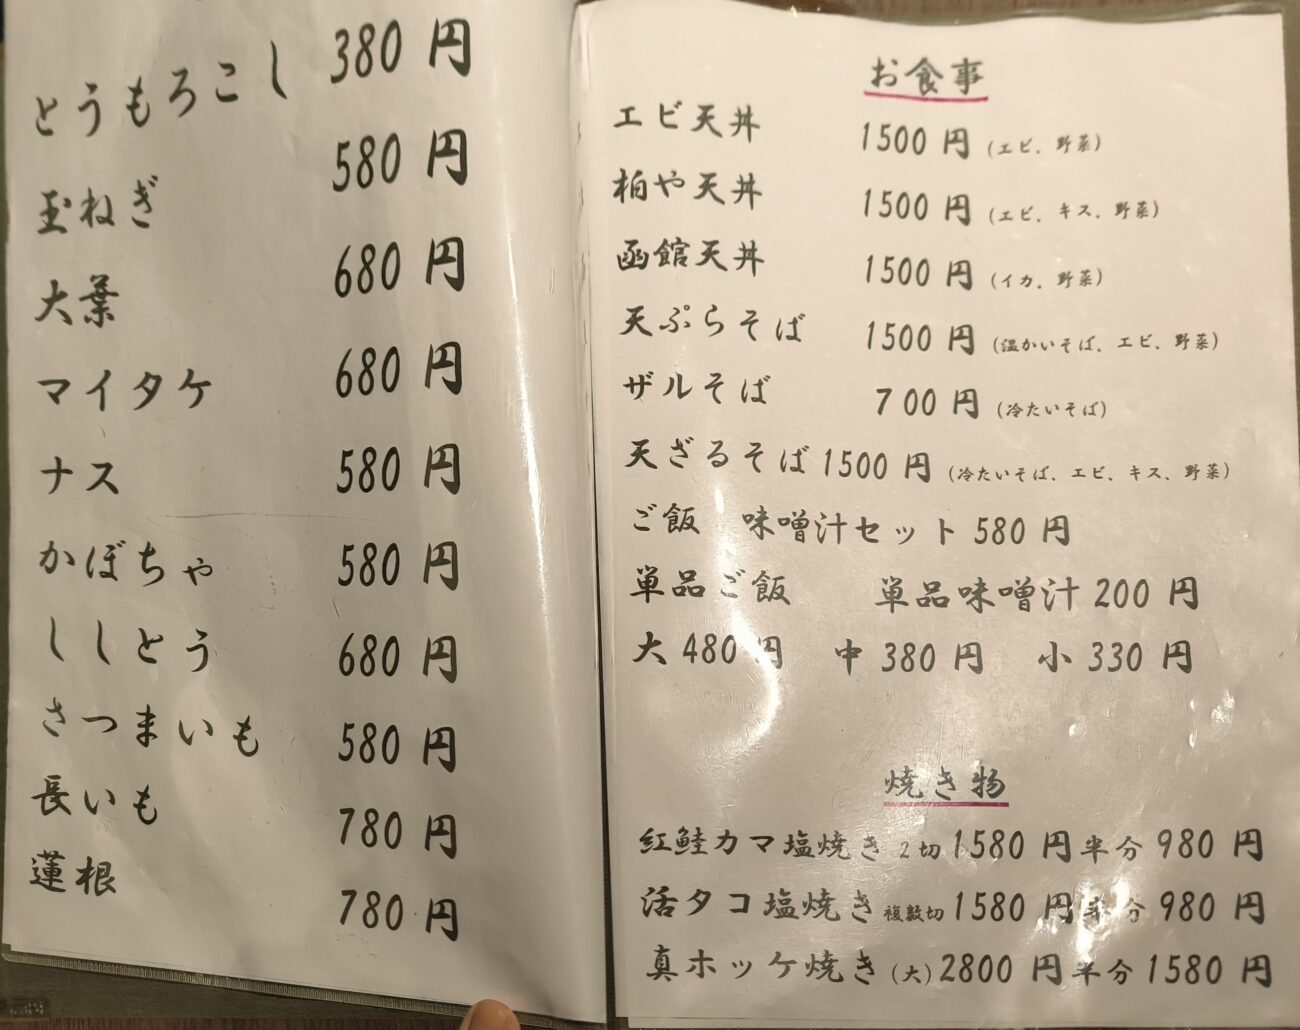 とうもろこし 380円
玉ねぎ 580円
大葉 680円
マイタケ 680円
ナス 580円
かぼちゃ 580円
ししとう 680円
さつまいも 580円
長いも 780円
蓮根 780円
お食事
エビ天丼 1500円 (エビ、野菜)
柏や天丼 1500円 (エビ、キス、野菜)
函館天丼 1500円 (イカ、野菜)
天ぷらそば 1500円 (温かいそば、エビ、野菜)
ザルそば 700円 (冷たいそば)
天ざるそば 1500円 (冷たいそば、エビ、キス、野菜)
ご飯 味噌汁セット 580円
単品ご飯 単品味噌汁 200円
大 480円 中 380円 小 330円
焼き物
紅鮭カマ塩焼き 2切 1580円 半分 980円
活タコ塩焼き 複数切 1580円 半分 980円
真ホッケ焼き (大) 2800円 半分 1580円